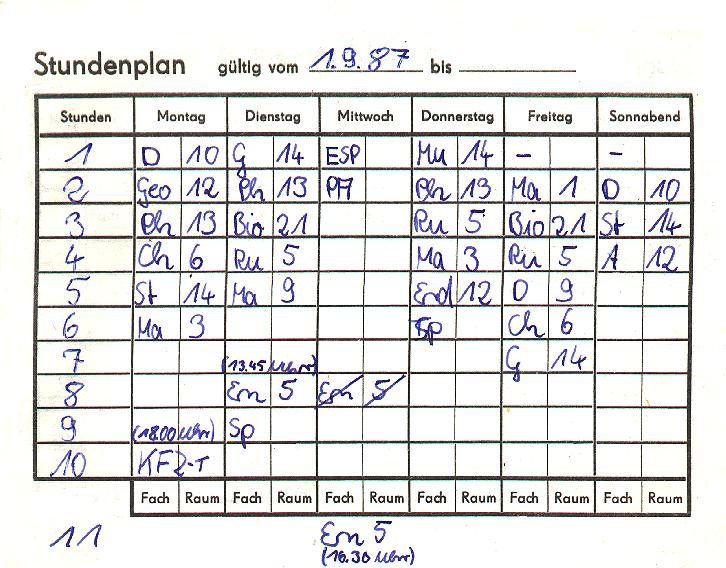 Stundenplan gültig vom 1.9.87 bis
Stunden Montag Dienstag Mittwoch Donnerstag Freitag Sonnabend
1 D 10 G 14 ESP Mu 14 – –
2 Geo 12 Ph 13 PA Ph 13 Ma 1 D 10
3 Ph 13 Bio 21 Ru 5 Bio 21 St 14
4 Ch 6 Ru 5 Ma 3 Ru 5 A 12
5 St 14 Ma 9 End 12 D 9
6 Ma 3 Sp Ch 6
7 (13.45 Uhr) G 14
8 Em 5 5
9 (18.00 Uhr) Sp
10 KFZ-T
Fach Raum Fach Raum Fach Raum Fach Raum Fach Raum Fach Raum
11 Em 5
(16.30 Uhr)